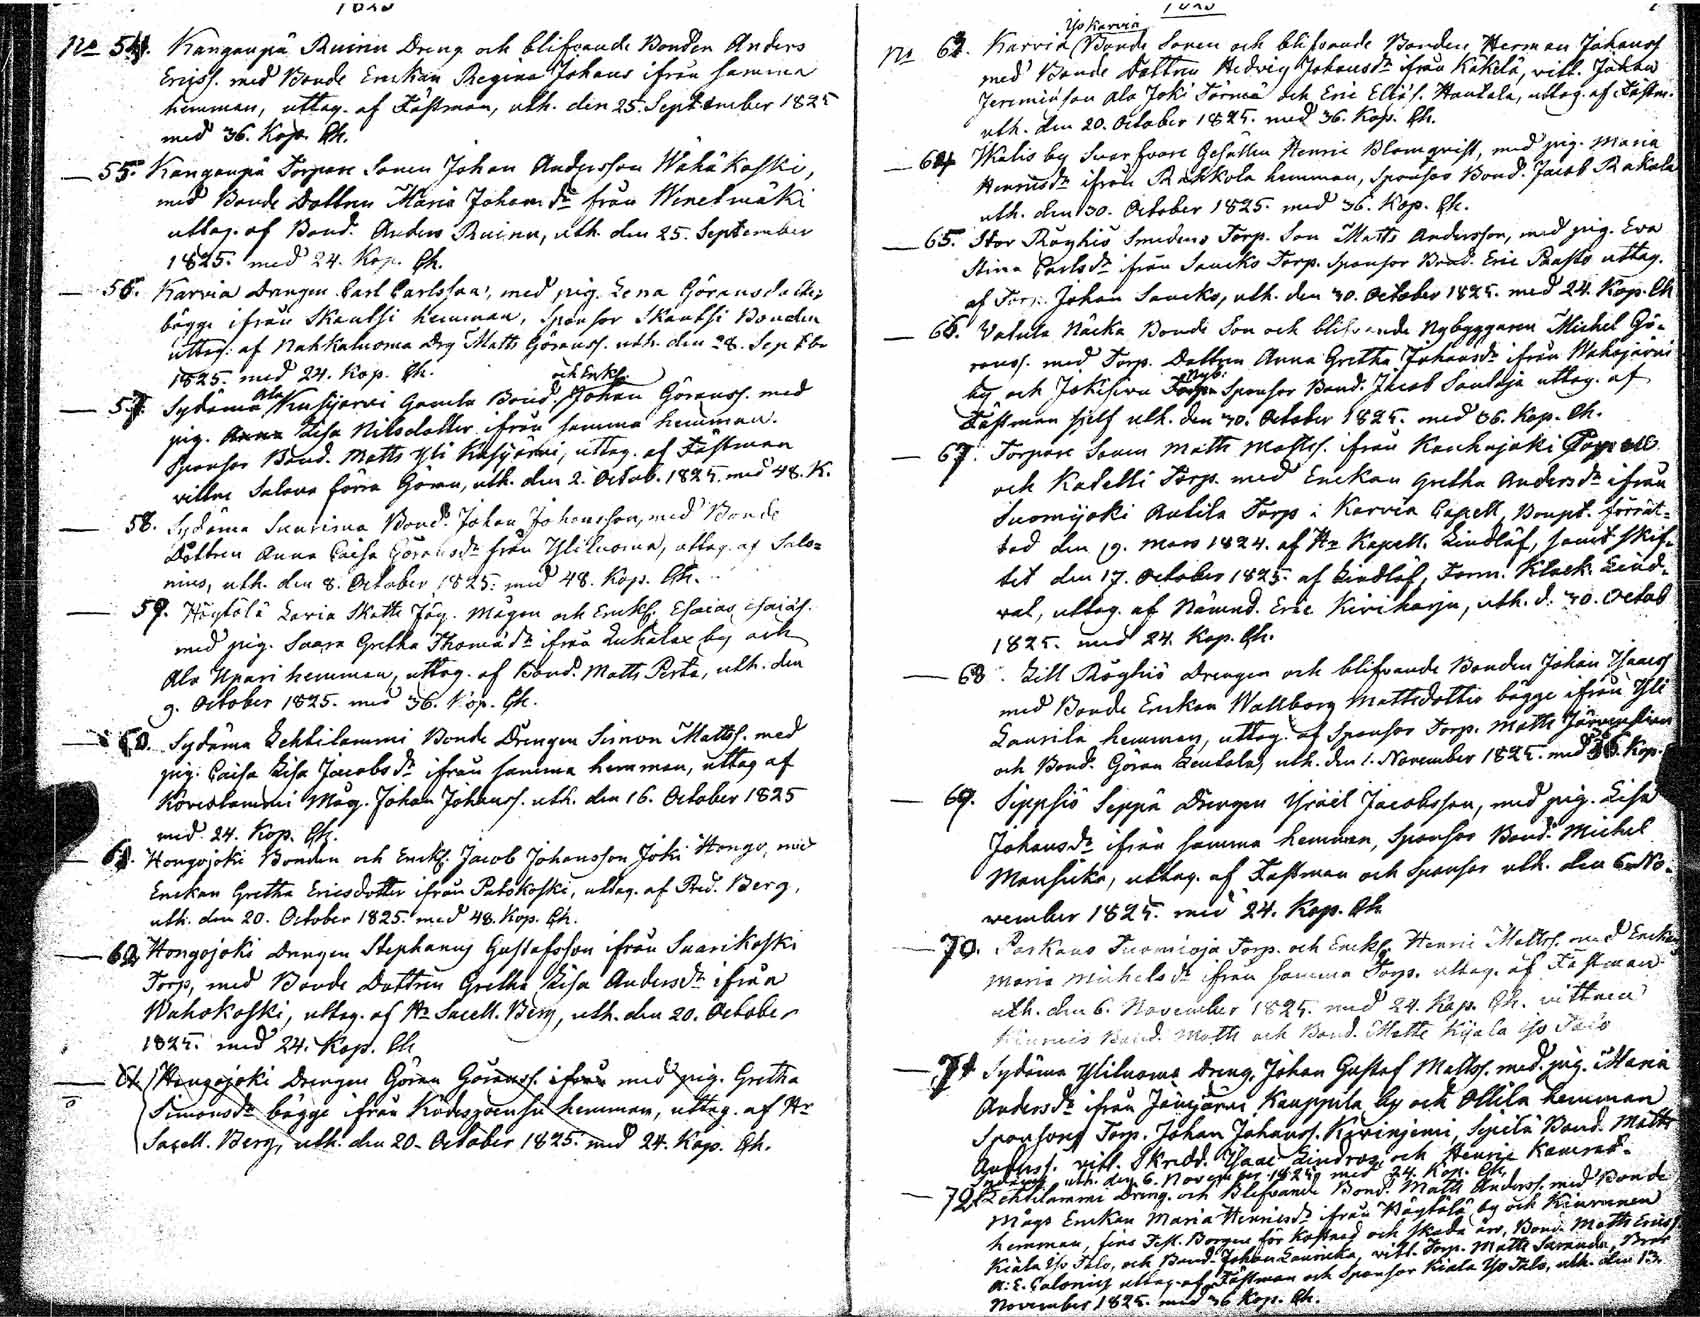 1825
No 54. Kangaupä Ruinu Dreng och blifvande Bonden Anders
Ericss. med Bonde Enckan Regina Johans ifrån samma
hemman, uttag. af Fästman, uth. den 25. September 1825
med 36. Kop. Ch.
— 55. Kangaupä Torpare Sonen Johan Andersson Wahäkoski,
med Bonde Dottren Maria Johansdr från Wenetmäki
uttag. af Bond. Anders Ruinu, uth. den 25. September
1825. med 24. Kop. Ch.
— 56. Karvia Drengen Carl Carlsson, med pig. Lena Göransdotter
bägge ifrån Skantsi hemman, Sponsor Skantsi Bonden
uttag. af Nahkaluoma Drg Matts Göranss. uth. den 28. Septbr
1825. med 24. Kop. Ch.
och Enkl.
— 57. Sydänma Ala Kusijarvi Gamla Bond. Johan Göranss. med
pig. Anna Lisa Nilsdotter ifrån samma hemman.
Sponsor Bond. Matts Yli Kusjärvi, uttag. af Fästman
vittne Salava förra Göran, uth. den 2. Octob. 1825. med 48. K.
— 58. Sydänma Suurima Bond. Johan Johansson, med Bonde
Dottren Anna Caisa Göransdr från Yliluoma, uttag. af Salo-
nius, uth. den 8. October 1825. med 48. Kop. Ch.
— 59. Högkölä Levia Skatte Jäg. Mågen och Enckl. Esaias Esaiäs.
med pig. Saara Gretha Thomädr ifrån Luhalax by och
Ala Upari hemman, uttag. af Bond. Matts Perta, uth. den
9. October 1825. med 36. Kop. Ch.
— 60. Sydänma Lehtilammi Bonde Drengen Simon Matts. med
pig. Caisa Lisa Jacobsdr ifrån samma hemman, uttag af
Koveslammi Måg. Johan Johanss. uth. den 16. October 1825
med 24. Kop. Ch.
— 61. Hongojoki Bonden och Enckl. Jacob Johansson Joki Hongo, med
Enckan Gretha Ericsdotter ifrån Patokoski, uttag. af Pred. Berg,
uth. den 20. October 1825. med 48. Kop. Ch.
— 62. Hongojoki Drengen Stephanus Gustafsson ifrån Suarikoski
Torp, med Bonde Dottren Gretha Lisa Andersdr ifrån
Wahokoski, uttag. af Hr Sacell. Berg, uth. den 20. October
1825. med 24. Kop. Ch.
Hongojoki Drengen Göran Göranss. ifrån med pig. Gretha
Simonsdr bägge ifrån hemman, uttag. af Hr
Sacell. Berg, uth. den 20. October 1825. med 24. Kop. Ch.
1825
Yli Karvia
No 63. Karvia Bonde Sonen och blifvande Bonden Herman Johanss
med Bonde Dottren Hedvig Johansdr ifrån Käkelä, vitt. Johan
Jeremiäson Ala Joki Törmä och Eric Eliäs. Hautala, uttag. af Fästm.
uth. den 20. October 1825. med 36. Kop. Ch.
— 64. Walis by Svarfvare Gesällen Henric Blomqvist, med pig. Maria
Henricsdr ifrån Rahkola hemman, Sponsor Bond. Jacob Rakola
uth. den 30. October 1825. med 36. Kop. Ch.
— 65. Stor Röyhiö Smedens Torp. Son Matts Andersson, med pig. Eva
Stina Carlsdr ifrån Saucks Torp. Sponsor Bond. Eric uttag.
af Torp. Johan Saucks, uth. den 30. October 1825. med 24. Kop. Ch
— 66. Vatula Näcka Bonde Son och blifvande Nybyggaren Michel Gö-
ranss. med Torp. Dottren Anna Gretha Johansdr ifrån Wahojärvi
by och Jokisivu Nyb: Sponsor Bond. Jacob Santaja uttag. af
Fästman sjelf uth. den 30. October 1825. med 36. Kop. Ch.
— 67. Torpare Sonen Matts Mattss. ifrån Kauhajoki Capell
och Katelli Torp. med Enckan Gretha Andersdr ifrån
Suomijoki Autila Torp i Karvia Capell, Boupt. förrät-
tad den 19. Mars 1824. af Hr Kapell. Lindlöf, samt skif-
tet den 17. October 1825. af Lindlöf, Form. Klock. Lind-
val, uttag. af Nämnd. Eric Kiviharju, uth. d. 30. Octob
1825. med 24. Kop. Ch.
— 68. Lill Röyhiö Drengen och blifvande Bonden Johan Isaacs
med Bonde Enckan Wallborg Mattsdotter bägge ifrån Yli
Laurila hemman, uttag. af Sponsor Torp. Matts
och Bond. Göran Lentala, uth. den 1. November 1825. med 36. Kop.
— 69. Sippsiö Seppä Drengen Israel Jacobsson, med pig. Lisa
Johansdr ifrån samma hemman, Sponsor Bond. Michel
Mansicka, uttag. af Fästman och Sponsor uth. den 6. No-
vember 1825. med 24. Kop. Ch.
— 70. Parkano Tuomioja Torp. och Enckl. Henric Mattss. med Enckan
Maria Michelsdr ifrån samma Torp. uttag. af Fästman
uth. den 6. November 1825. med 24. Kop. Ch. vittnen
Bond. Matts och Bond. Matts Kijala Iso Talo
— 71. Sydänma Yliluoma Dreng. Johan Gustaf Mattss. med pig. Maria
Andersdr ifrån Jämijärvi Kauppila by och Ollila hemman
Sponsors Torp. Johan Johanss. Kivinjemi, Sipilä Bond. Matts
Anderss. vitt. Skredd. Isaac Lindros och Henric Kamrad.
uth. den 6. November 1825 med 24. Kop. Ch.
— 72. Lehtilammi Dreng. och Blifvande Bond. Matts Anderss. med Bonde
Mågs Enckan Maria Henricsdr ifrån Högkölä by och Kinnunen
hemman, Borgen för kostnad och skada är, Bond. Matts Ericss
Kiala Iso Talo, och Bond. Johan Lauricka, vitt. Torp. Matts
A. E. Calonius uttag. af Fästman och Sponsor Kiala Iso Talo, uth. den 13.
November 1825. med 36 Kop. Ch.